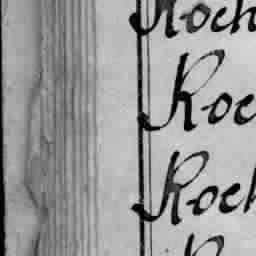 Roch
Roc
Roch